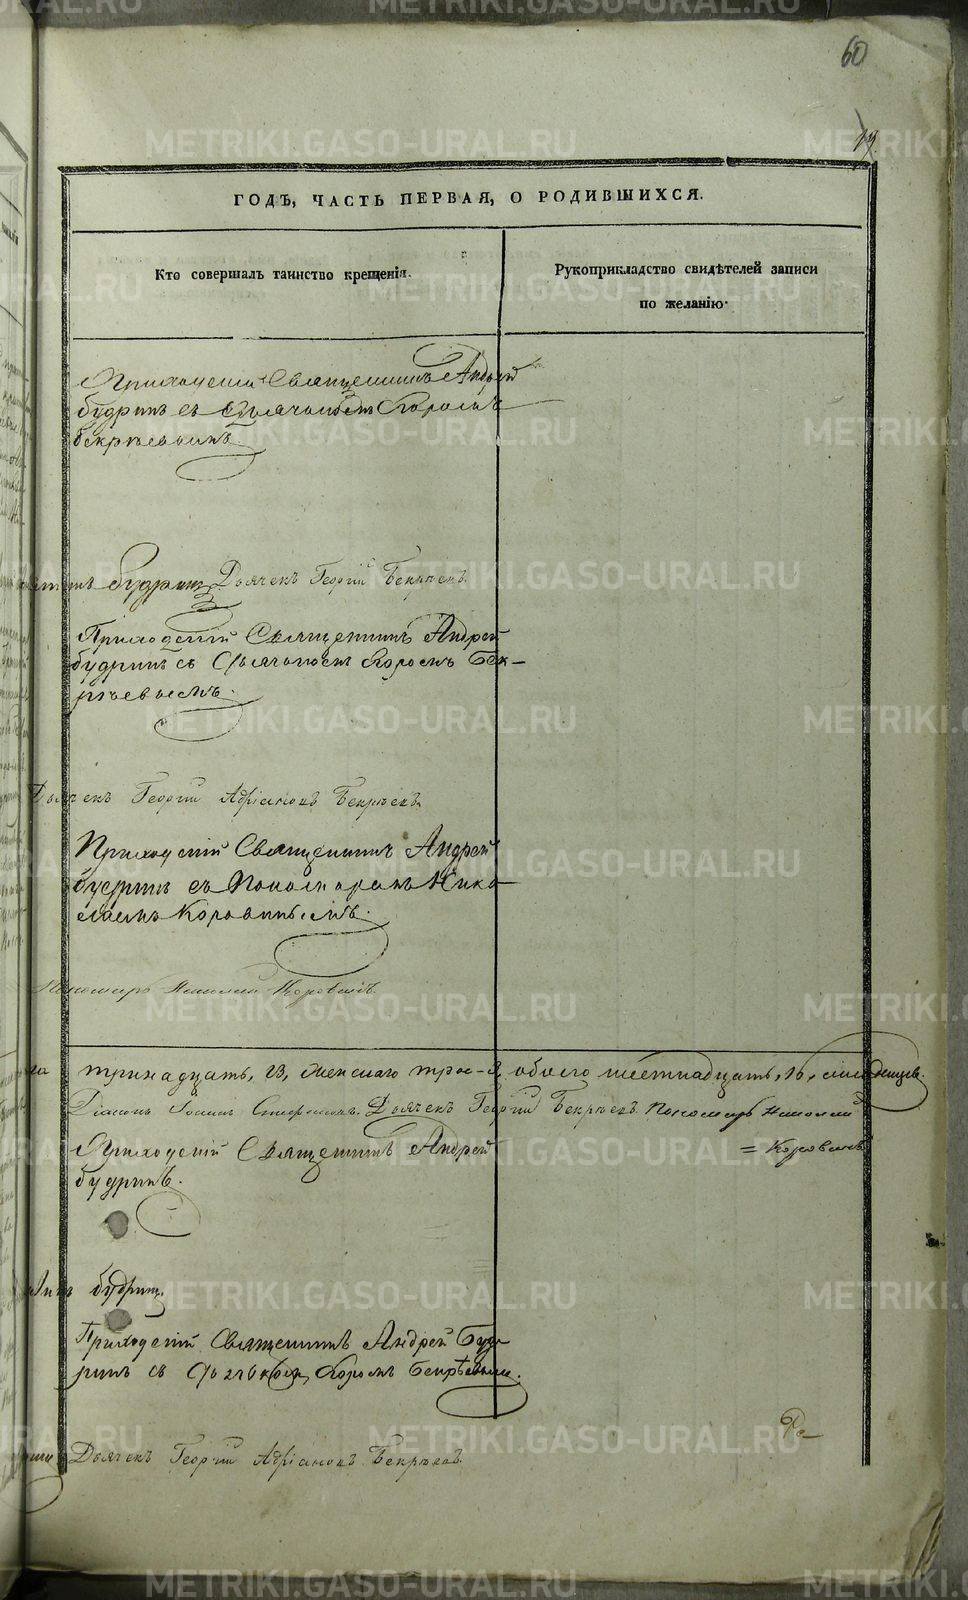 60
19.
ГОДЪ, ЧАСТЬ ПЕРВАЯ, О РОДИВШИХСЯ.
Кто совершалъ таинство крещенія.
Рукоприкладство свидѣтелей записи
по желанію.
Приходскій Священникъ Андрей
Будринъ съ Дьячкомъ
Бекрѣевымъ.
Будринъ Дьячекъ Георгій Бекрѣевъ.
Приходскій Священникъ Андрей
Будринъ съ Дьячкомъ Бек-
рѣевымъ.
Дьячекъ Георгій Адріановъ Бекрѣевъ.
Приходскій Священникъ Андрей
Будринъ съ Пономаремъ Нико-
лаемъ Коровинымъ.
Пономарь Николай Коровинъ.
тринадцать, 13, женскаго трое 3, обоего шестнадцать, 16, младенцевъ.
Діаконъ Дьячекъ Георгій Бекрѣевъ Пономарь Николай
= Коровинъ
Приходскій Священникъ Андрей
Будринъ.
Будринъ.
Приходскій Священникъ Андрей Буд-
ринъ съ Дьячкомъ Бекрѣевымъ.
Дьячекъ Георгій Адріановъ Бекрѣевъ.
METRIKI.GASO-URAL.RU